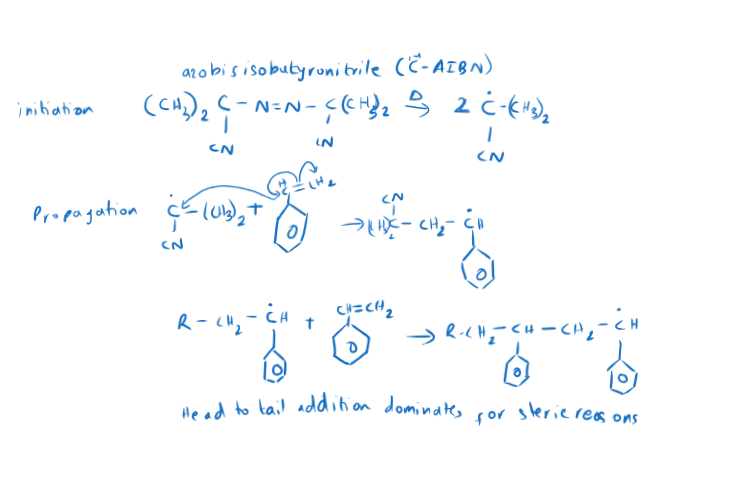 azobisisobutyronitrile (C-AIBN)
initiation (CH3)2 C - N=N - C(CH3)2 Δ → 2 Ċ-(CH3)2
CN CN CN
Propagation Ċ-(CH3)2 + HC=CH2 → (CH3)2C - CH2 - ĊH
CN CN
R - CH2 - ĊH + CH=CH2 → R-CH2-CH-CH2-ĊH
Head to tail addition dominates for steric reasons